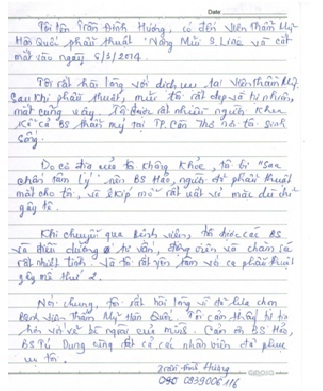 Date
Tôi tên Trần Đình Hương, có đến Viện Thẩm Mỹ
Hàn Quốc phẫu thuật "Nâng Mũi S.Line và cắt
mắt vào ngày 6/3/2014.
Tôi rất hài lòng với dịch vụ tại Viện Thẩm Mỹ.
Sau khi phẫu thuật, mũi tôi rất đẹp và tự nhiên,
mắt cũng vậy. Tôi được rất nhiều người khen
kể cả BS thẩm mỹ tại TP. Cần Thơ nơi tôi sinh
sống.
Do cơ địa của tôi không khỏe, tôi bị
tâm lý nên BS Hảo, người đã phẫu thuật
mắt cho tôi, và êkíp mổ rất vất vả mặc dù chỉ
gây tê.
Khi chuyển qua bệnh viện, tôi được các BS
và điều dưỡng tư vấn, động viên và chăm sóc
rất nhiệt tình. Và tôi rất yên tâm với ca phẫu thuật
gây mê thứ 2.
Nói chung, tôi rất hài lòng vì đã lựa chọn
Bệnh viện Thẩm Mỹ Hàn Quốc. Tôi cảm thấy tự tin
hơn với vẻ bề ngoài của mình. Cảm ơn BS Hảo,
BS Tú Dung cùng tất cả các nhân viên đã phục
vụ tôi.
Trần Đình Hương
090 0939006116